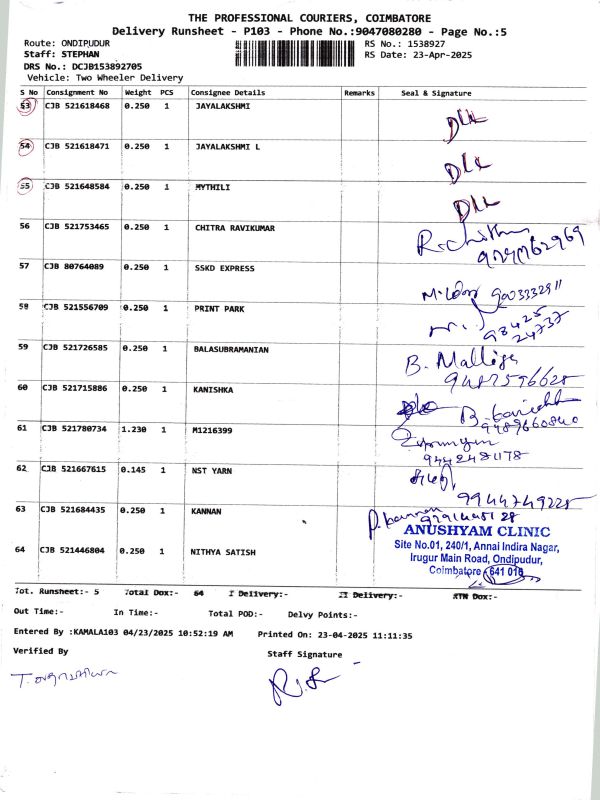 THE PROFESSIONAL COURIERS, COIMBATORE
Delivery Runsheet - P103 - Phone No.:9047080280 - Page No.:5
Route: ONDIPUDUR RS No.: 1538927
Staff: STEPHAN RS Date: 23-Apr-2025
DRS No.: DCJB153892705
Vehicle: Two Wheeler Delivery
S No Consignment No Weight PCS Consignee Details Remarks Seal & Signature
53 CJB 521618468 0.250 1 JAYALAKSHMI
54 CJB 521618471 0.250 1 JAYALAKSHMI L
55 CJB 521648584 0.250 1 MYTHILI
56 CJB 521753465 0.250 1 CHITRA RAVIKUMAR
57 CJB 80764089 0.250 1 SSKD EXPRESS
9003332911
58 CJB 521556709 0.250 1 PRINT PARK
98425
24737
59 CJB 521726585 0.250 1 BALASUBRAMANIAN
B. Malliga
9487596628
60 CJB 521715886 0.250 1 KANISHKA
61 CJB 521780734 1.230 1 M1216399
62 CJB 521667615 0.145 1 NST YARN
9944749225
63 CJB 521684435 0.250 1 KANNAN
P. kannan
ANUSHYAM CLINIC
Site No.01, 240/1, Annai Indira Nagar,
64 CJB 521446804 0.250 1 NITHYA SATISH
Irugur Main Road, Ondipudur,
Coimbatore - 641 016
Tot. Runsheet:- 5 Total Dox:- 64 I Delivery:- II Delivery:- RTN Dox:-
Out Time:- In Time:- Total POD:- Delvy Points:-
Entered By :KAMALA103 04/23/2025 10:52:19 AM Printed On: 23-04-2025 11:11:35
Verified By Staff Signature